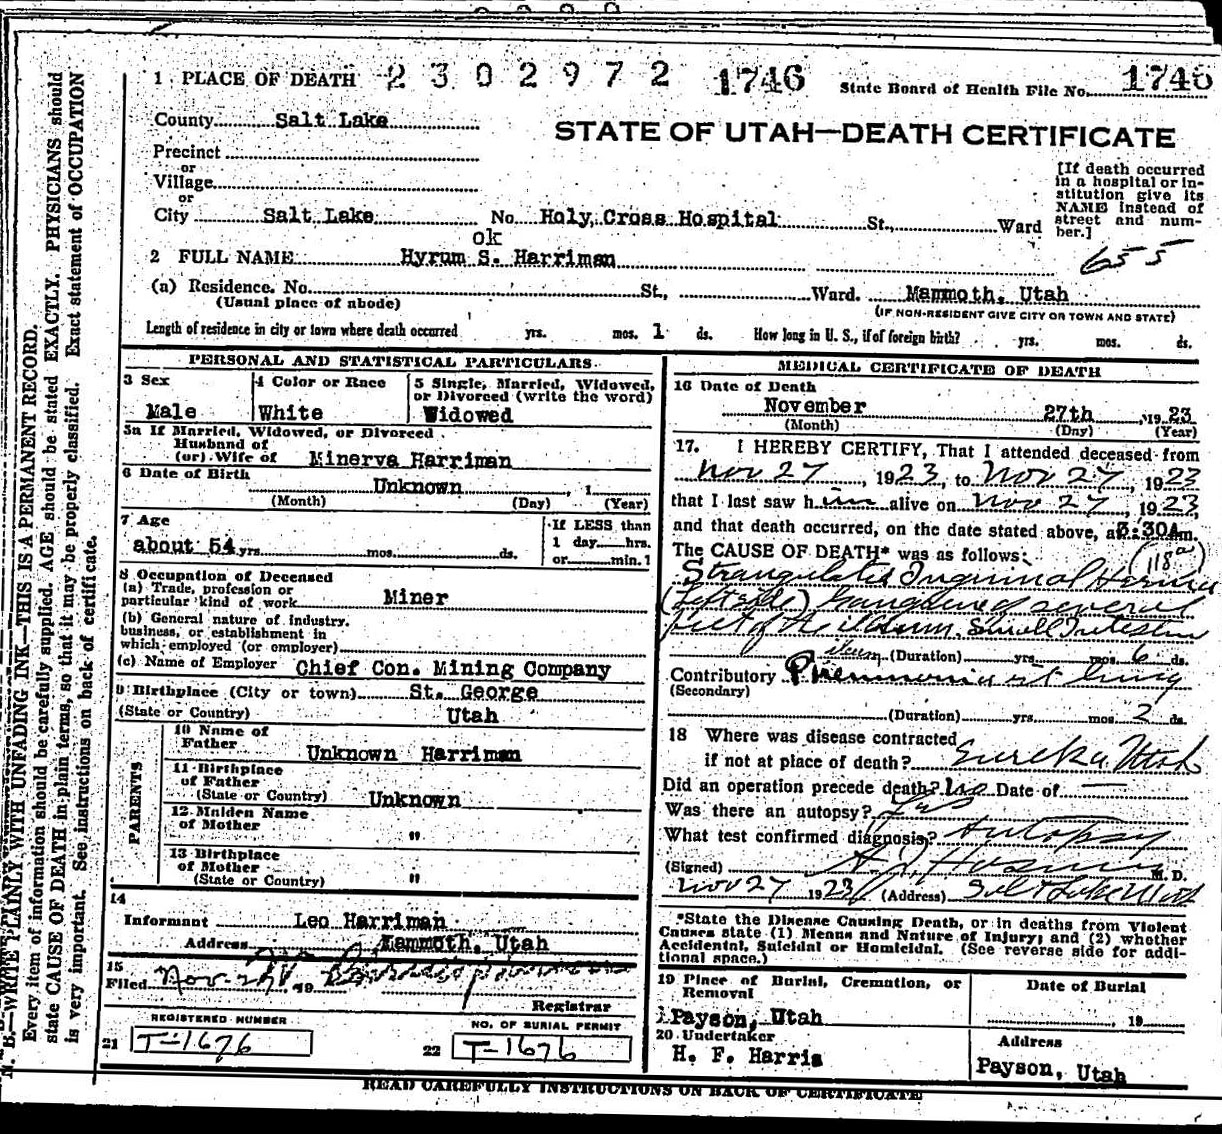 1 PLACE OF DEATH 2302972 1746 State Board of Health File No. 1746
County Salt Lake
STATE OF UTAH—DEATH CERTIFICATE
Precinct
or
Village
or
City Salt Lake No. Holy Cross Hospital St., Ward
[If death occurred
in a hospital or in-
stitution give its
NAME instead of
street and num-
ber.]
ok
655
2 FULL NAME Hyrum S. Harriman
(a) Residence. No. St., Ward. Mammoth, Utah
(Usual place of abode) (IF NON-RESIDENT GIVE CITY OR TOWN AND STATE)
Length of residence in city or town where death occurred yrs. mos. 1 ds. How long in U. S., if of foreign birth? yrs. mos. ds.
PERSONAL AND STATISTICAL PARTICULARS
3 Sex
Male
4 Color or Race
White
5 Single, Married, Widowed,
or Divorced (write the word)
Widowed
5a If Married, Widowed, or Divorced
Husband of
(or) Wife of Minerva Harriman
6 Date of Birth
Unknown , 1
(Month) (Day) (Year)
7 Age
about 54 yrs. mos. ds.
If LESS than
1 day hrs.
or min.?
8 Occupation of Deceased
(a) Trade, profession or
particular kind of work Miner
(b) General nature of industry,
business, or establishment in
which employed (or employer)
(c) Name of Employer Chief Con. Mining Company
9 Birthplace (City or town) St. George
(State or Country) Utah
PARENTS
10 Name of
Father Unknown Harriman
11 Birthplace
of Father
(State or Country) Unknown
12 Maiden Name
of Mother "
13 Birthplace
of Mother
(State or Country) "
14
Informant Leo Harriman
Address Mammoth, Utah
15
Filed Nov. 19
Registrar
REGISTERED NUMBER
21 T-1676
NO. OF BURIAL PERMIT
22 T-1676
MEDICAL CERTIFICATE OF DEATH
16 Date of Death
November 27th , 1923
(Month) (Day) (Year)
17. I HEREBY CERTIFY, That I attended deceased from
Nov 27, 1923, to Nov 27, 1923
that I last saw him alive on Nov 27, 1923,
and that death occurred, on the date stated above, at :30A.m.
The CAUSE OF DEATH* was as follows: (118a)
Strangulated Inguinal Hernia
(Left side) Gangrene of several
feet of the illeum, Small Intestine
ileum (Duration) yrs. mos. 6 ds.
Contributory Pneumonia rt lung
(Secondary)
(Duration) yrs. mos. 2 ds.
18 Where was disease contracted
if not at place of death? Eureka Utah
Did an operation precede death? No Date of —
Was there an autopsy? Yes
What test confirmed diagnosis? Autopsy
(Signed) M. D.
Nov 27 1923 (Address) Salt Lake Utah
*State the Disease Causing Death, or in deaths from Violent
Causes state (1) Means and Nature of Injury; and (2) whether
Accidental, Suicidal or Homicidal. (See reverse side for addi-
tional space.)
19 Place of Burial, Cremation, or
Removal
Payson, Utah
Date of Burial
, 19
20 Undertaker
H. F. Harris
Address
Payson, Utah
READ CAREFULLY INSTRUCTIONS ON BACK OF CERTIFICATE
N. B.—WRITE PLAINLY WITH UNFADING INK—THIS IS A PERMANENT RECORD.
Every item of information should be carefully supplied. AGE should be stated EXACTLY. PHYSICIANS should
state CAUSE OF DEATH in plain terms, so that it may be properly classified. Exact statement of OCCUPATION
is very important. See instructions on back of certificate.